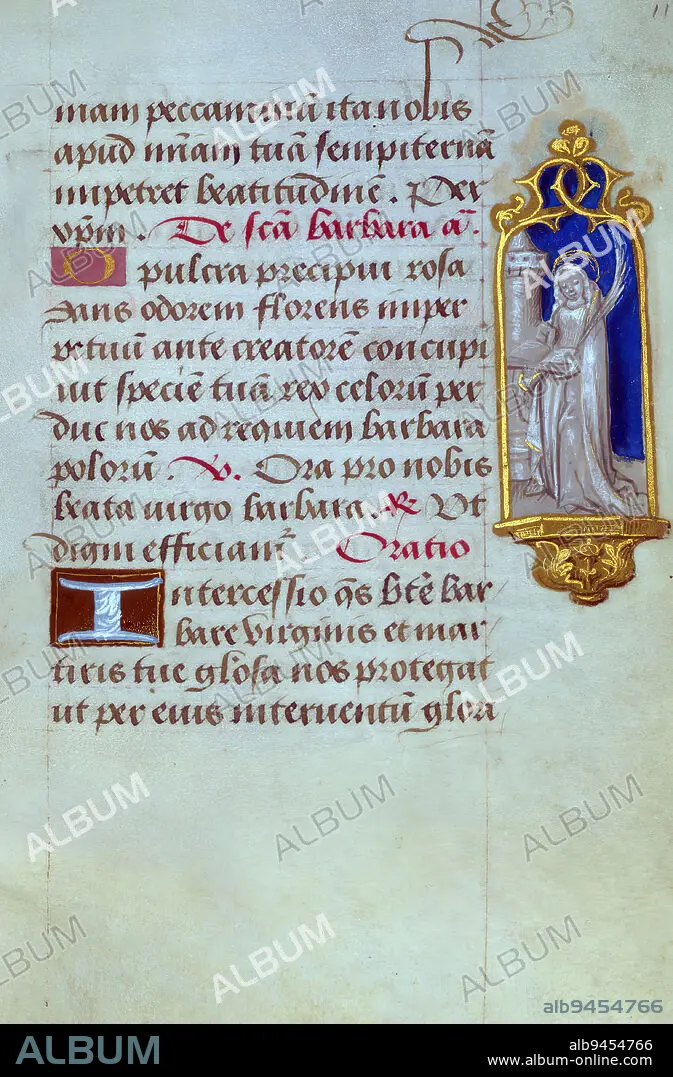 11
mam peccaminū ita nobis
apud mīam tuā sempiternā
impetret beatitudinē. Per
xp̄m. De scā barbara añ.
O pulcra precipui rosa
dans odorem florens imper
vetuum ante creatorē concupi
uit speciē tuā rex celorū per
duc nos ad requiem barbara
polorū. V. Ora pro nobis
beata uirgo barbara. R Vt
digni efficiam̄ Oratio
Intercessio q̄s btē bar
bare virginis et mar
tiris tue gl̄osa nos protegat
ut per eius interuentū glora
ALBUM
alb9454766
ALBUM
alb9454766
www.album-online.com